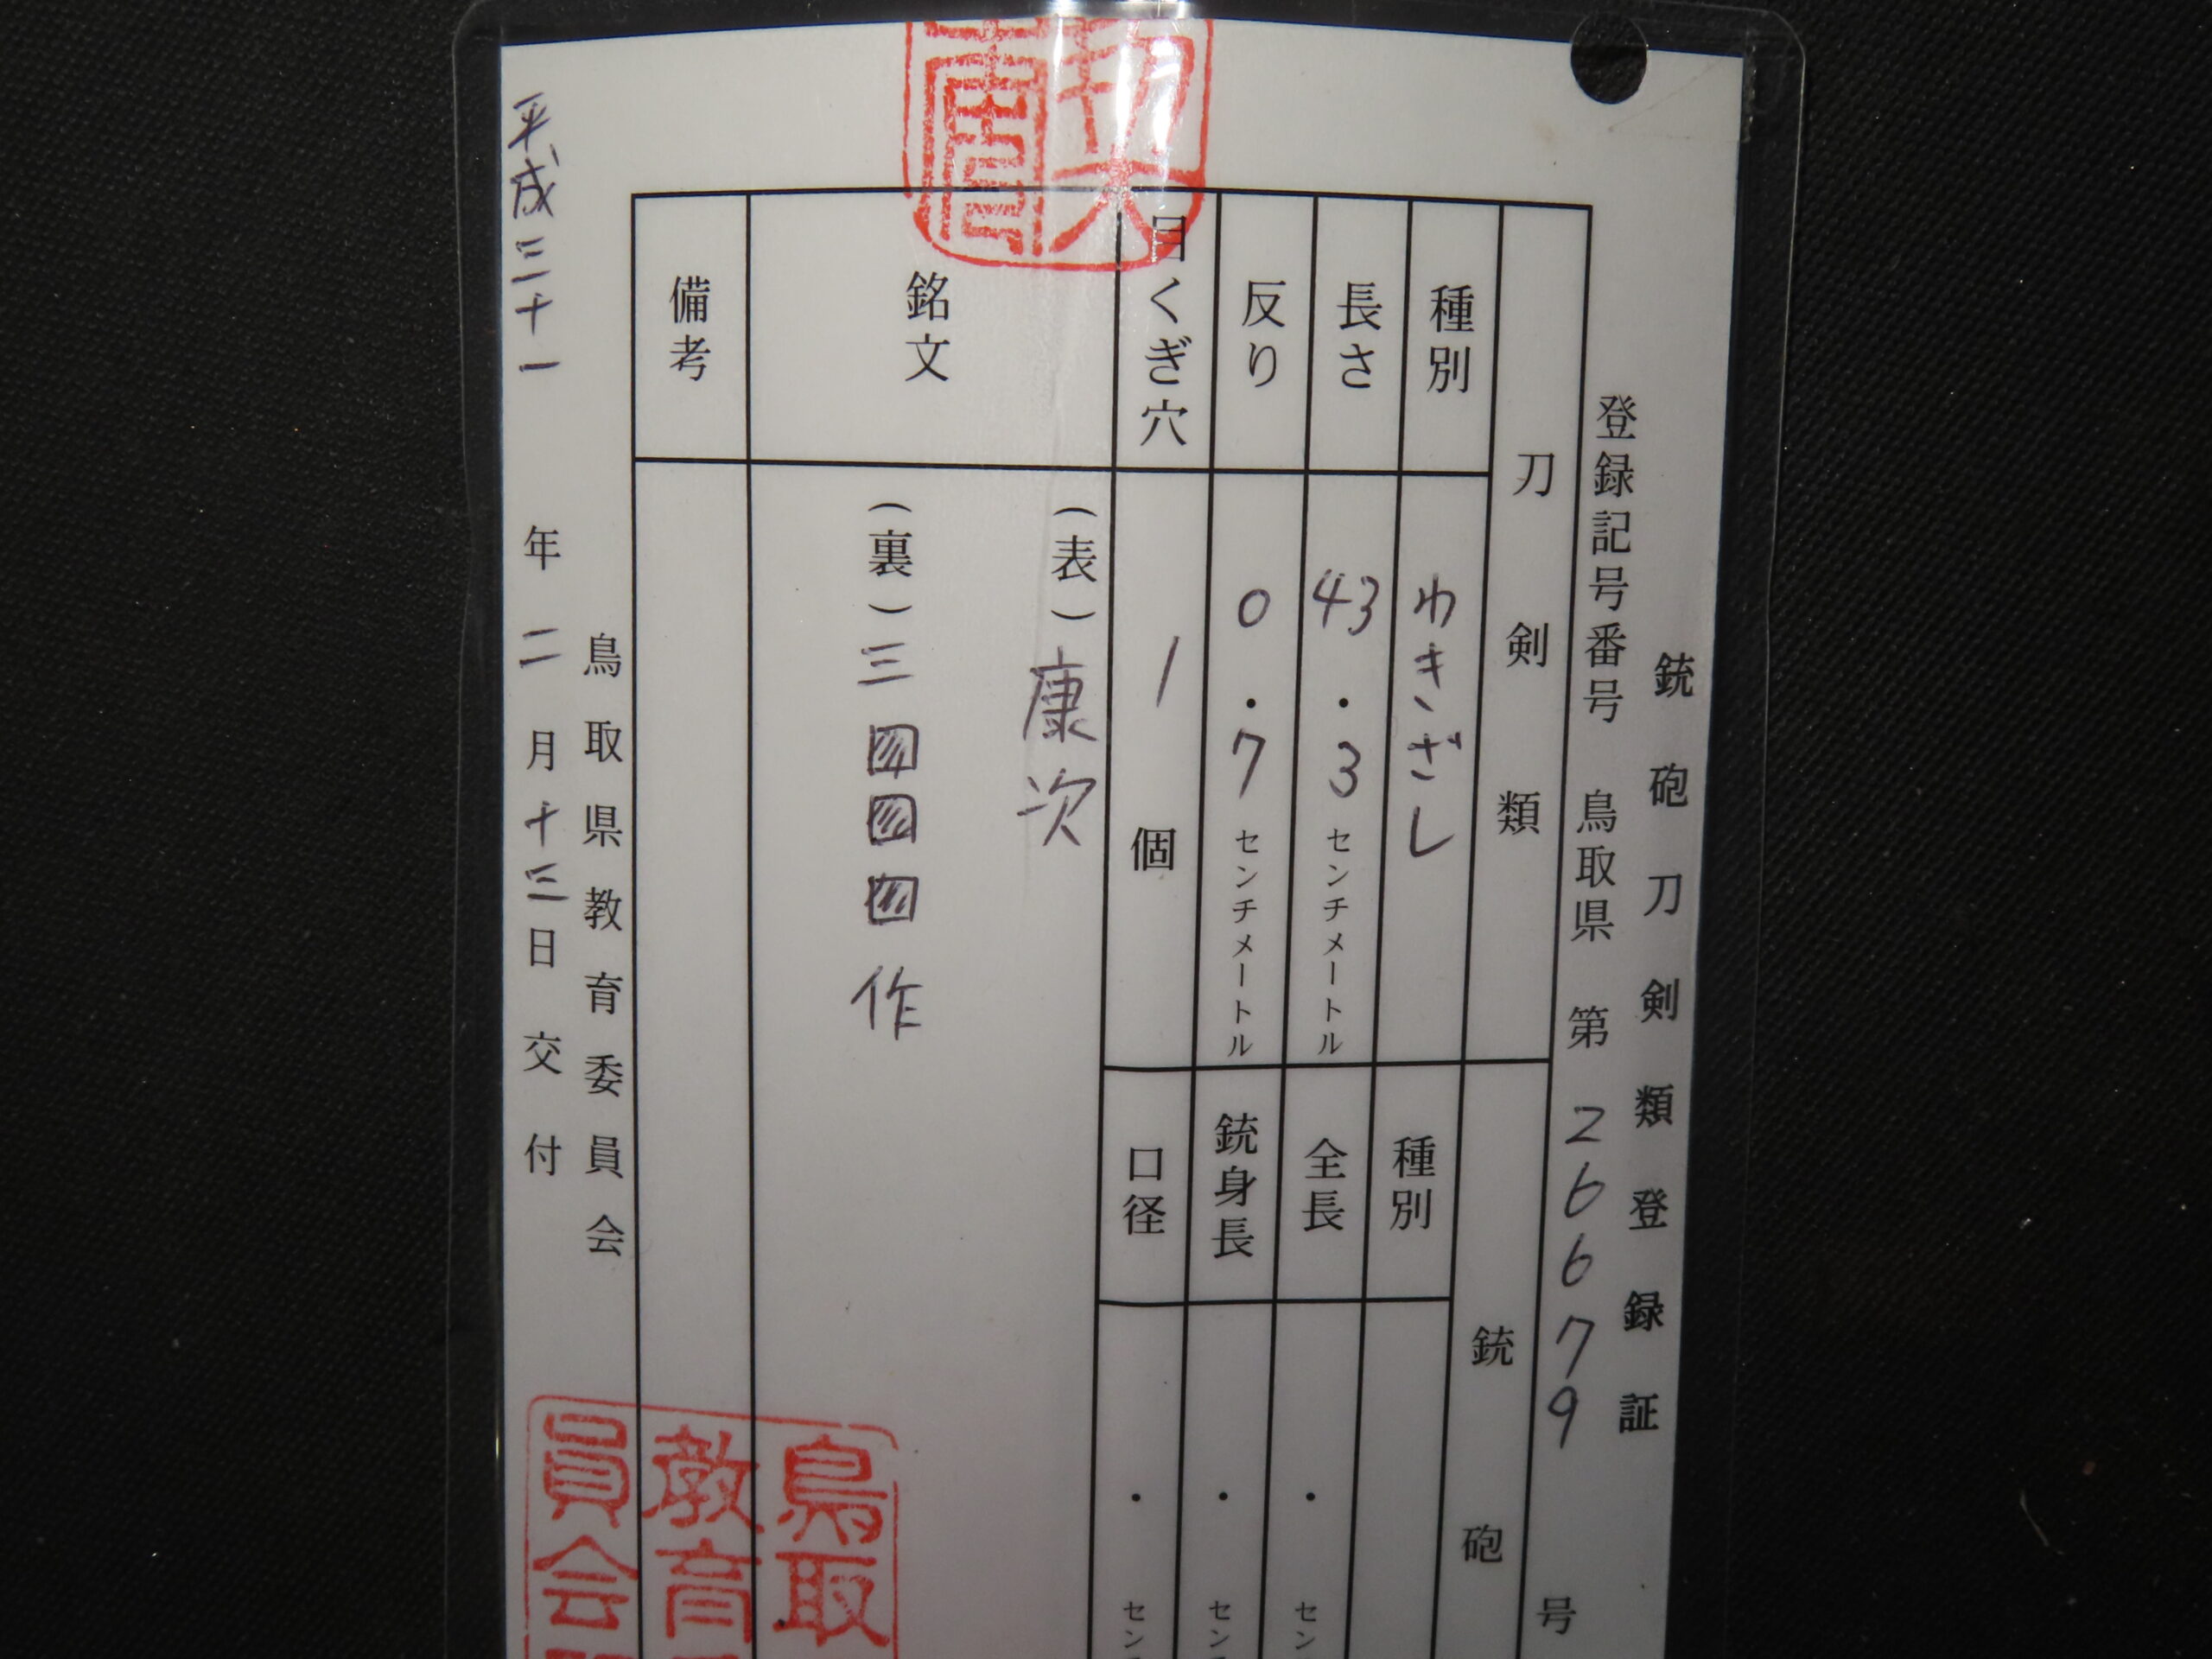 銃砲刀剣類登録証
登録記号番号 鳥取県 第 26679 号
刀剣類
銃砲
種別 わきざし
種別
長さ 43.3 センチメートル
全長 ・ セン
反り 0.7 センチメートル
銃身長 ・ セン
目くぎ穴 1 個
口径 ・ セン
銘文
(表) 康次
(裏) 三▨▨▨作
備考
鳥取県教育委員会
平成三十一年二月十三日交付
鳥取
教育
員会